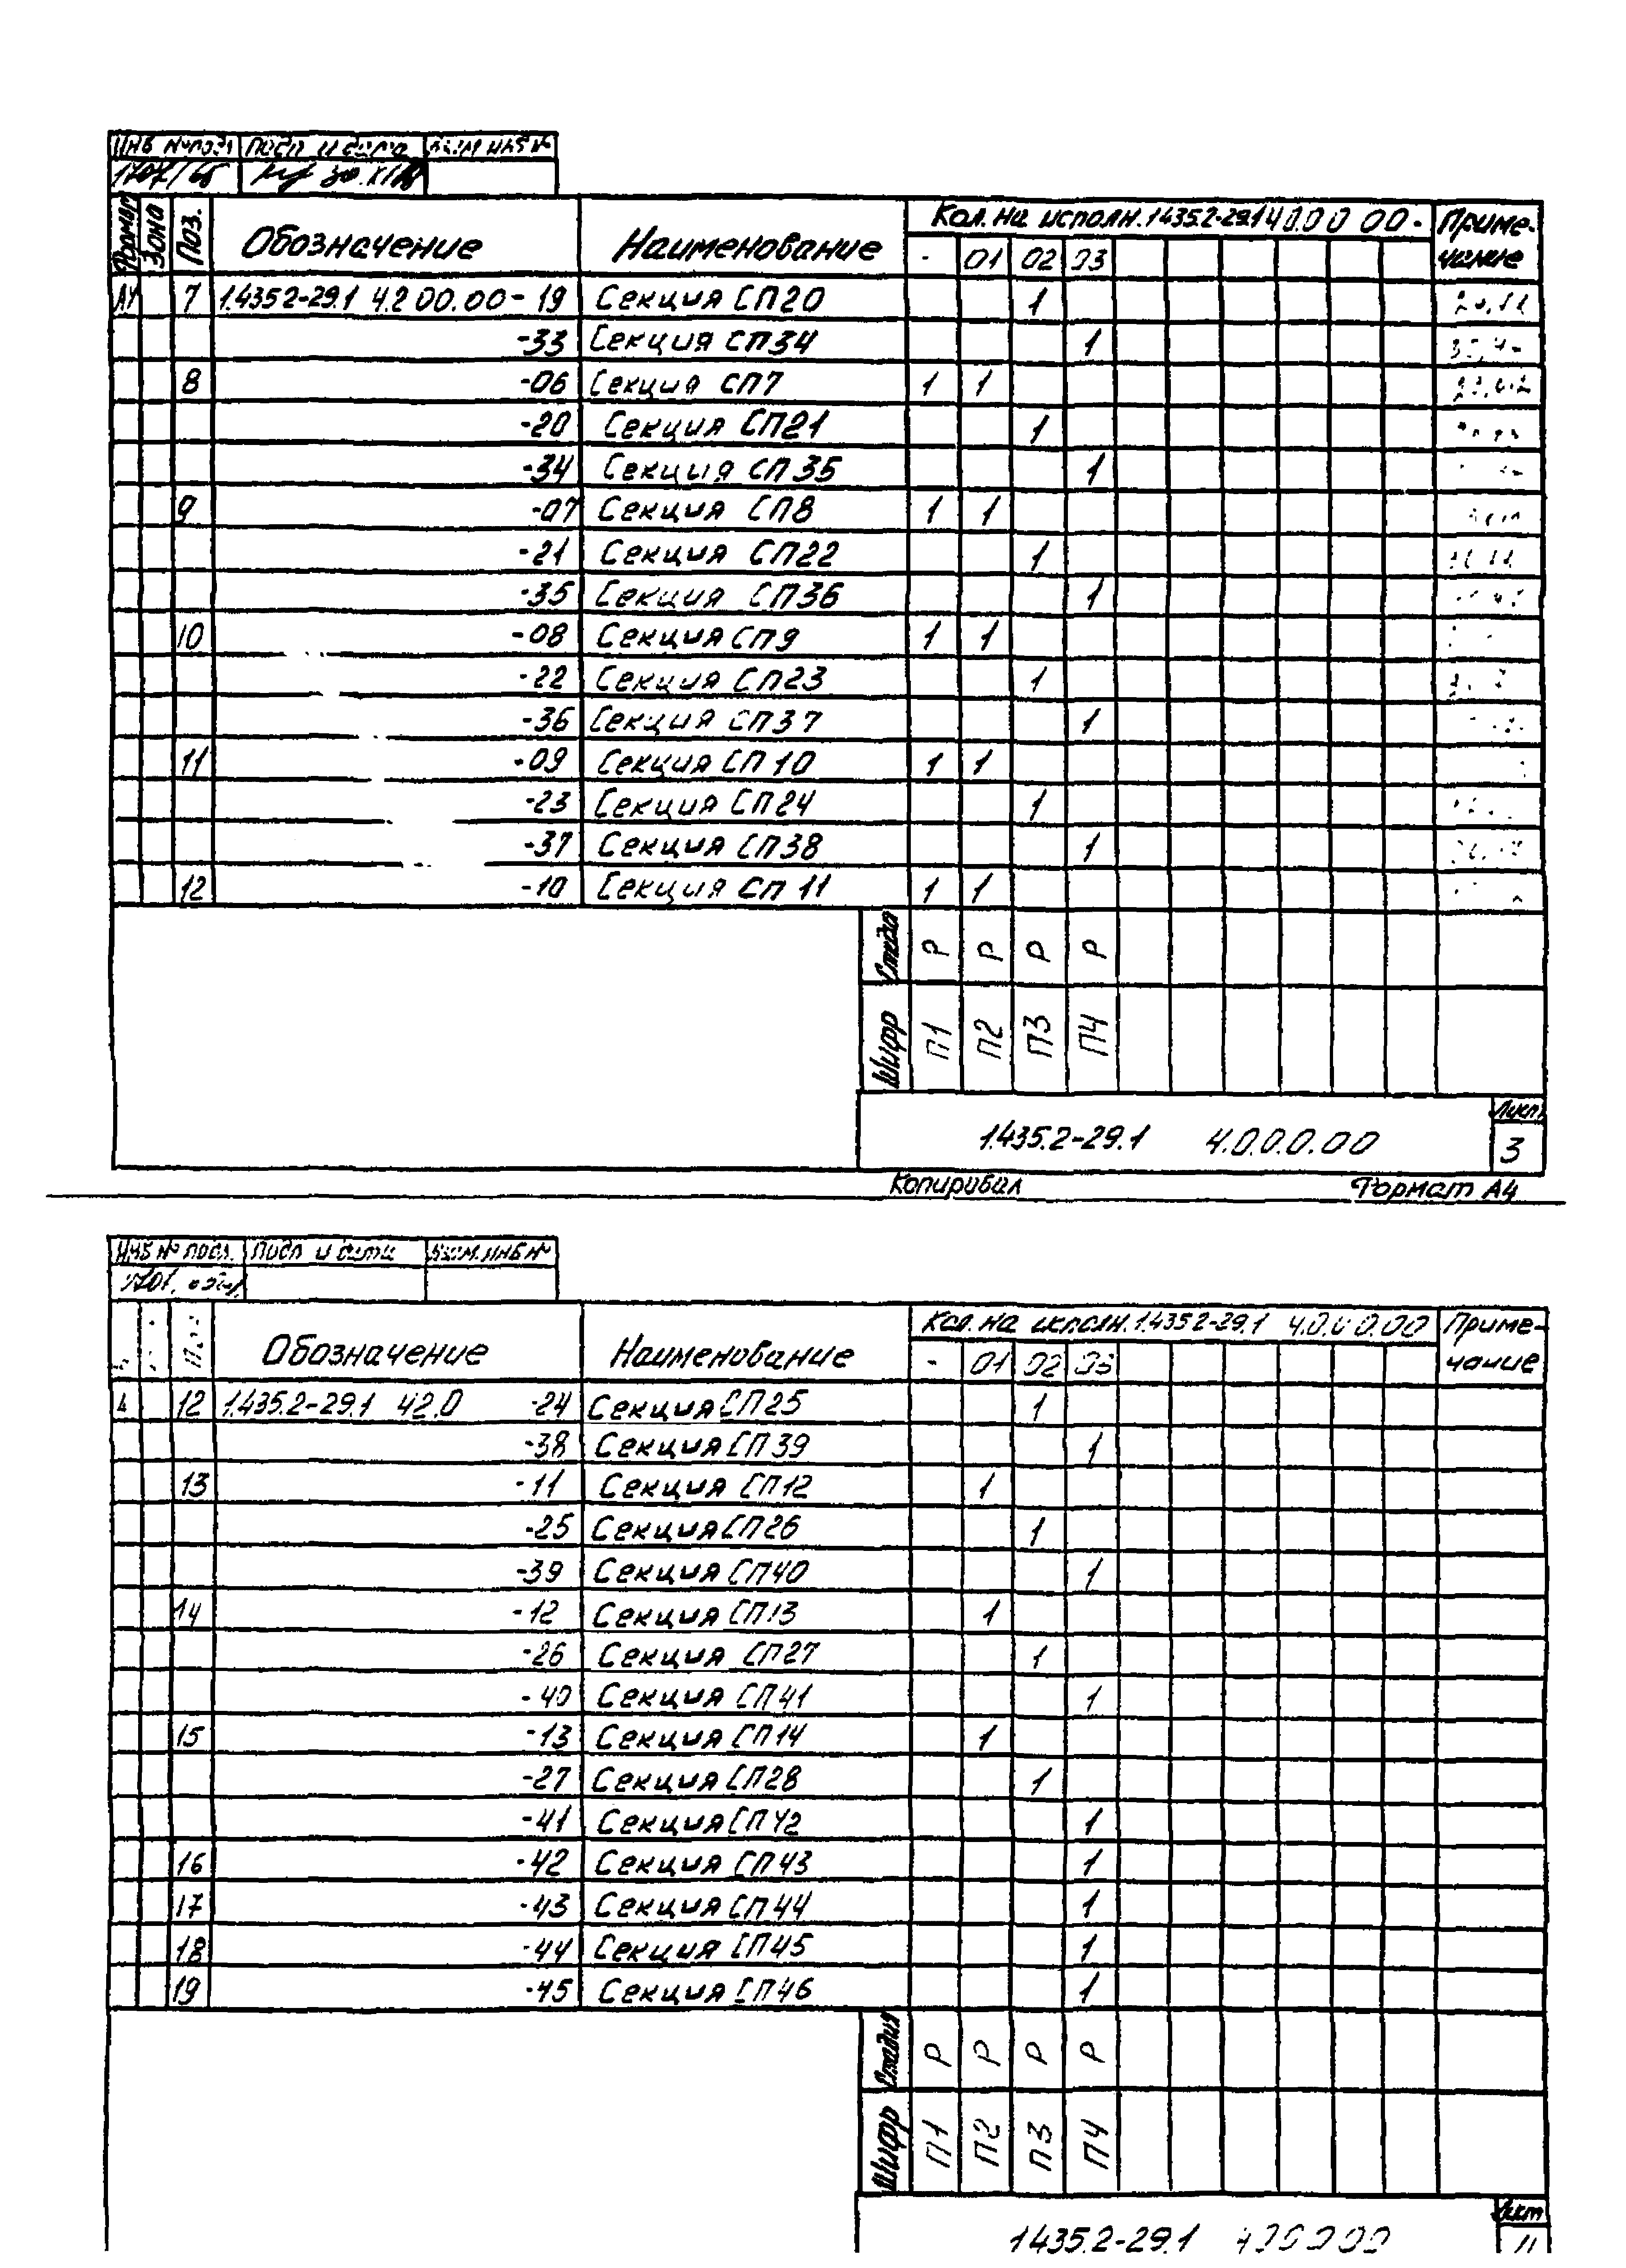 Инв № подл Подп и дата Взам инв №
Формат Зона Поз. Обозначение Наименование Кол. на исполн. 1.435.2-29.1 4.0.0.0.00- Приме-
- 01 02 03 чание
А4 7 1.435.2-29.1 4.2.00.00-19 Секция СП20 1
-33 Секция СП34 1
8 -06 Секция СП7 1 1
-20 Секция СП21 1
-34 Секция СП35 1
9 -07 Секция СП8 1 1
-21 Секция СП22 1
-35 Секция СП36 1
10 -08 Секция СП9 1 1
-22 Секция СП23 1
-36 Секция СП37 1
11 -09 Секция СП10 1 1
-23 Секция СП24 1
-37 Секция СП38 1
12 -10 Секция СП11 1 1
Стадия Р Р Р Р
Шифр П1 П2 П3 П4
Лист
1.435.2-29.1 4.0.0.0.00 3
Копировал Формат А4
Инв № подл. Подп и дата Взам. инв №
Обозначение Наименование Кол. на исполн. 1.435.2-29.1 4.0.0.0.00 Приме-
- 01 02 03 чание
12 1.435.2-29.1 4.2.0 -24 Секция СП25 1
-38 Секция СП39 1
13 -11 Секция СП12 1
-25 Секция СП26 1
-39 Секция СП40 1
14 -12 Секция СП13 1
-26 Секция СП27 1
-40 Секция СП41 1
15 -13 Секция СП14 1
-27 Секция СП28 1
-41 Секция СП42 1
16 -42 Секция СП43 1
17 -43 Секция СП44 1
18 -44 Секция СП45 1
19 -45 Секция СП46 1
Стадия Р Р Р Р
Шифр П1 П2 П3 П4
Лист
1.435.2-29.1